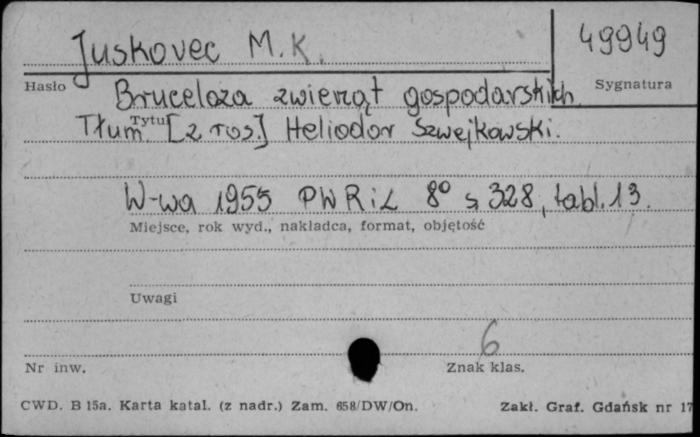 Juskovec M.K.
49949
Hasło
Sygnatura
Bruceloza zwierząt gospodarskich
Tytuł
Tłum. [z ros.] Heliodor Szwejkowski.
W-wa 1955 PWRiL 8° s. 328, tabl. 13.
Miejsce, rok wyd., nakładca, format, objętość
Uwagi
6
Nr inw.
Znak klas.
CWD. B 15a. Karta katal. (z nadr.) Zam. 658/DW/On.
Zakł. Graf. Gdańsk nr 17